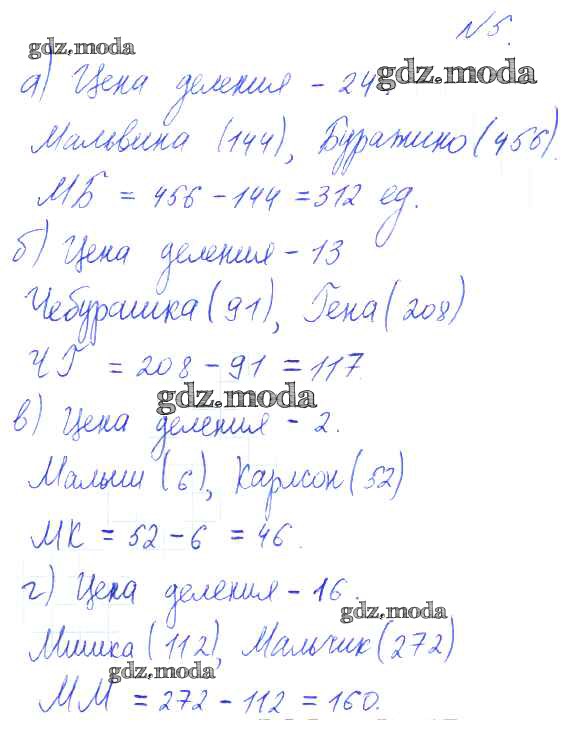 № 5.
gdz.moda
а) Цена деления - 24.
gdz.moda
Мальвина (144), Буратино (456).
МБ = 456 - 144 = 312 ед.
б) Цена деления - 13
Чебурашка (91), Гена (208)
ЧГ = 208 - 91 = 117.
gdz.moda
в) Цена деления - 2.
Малыш (6), Карлсон (52)
МК = 52 - 6 = 46.
г) Цена деления - 16.
gdz.moda
Мишка (112), Мальчик (272)
gdz.moda
ММ = 272 - 112 = 160.